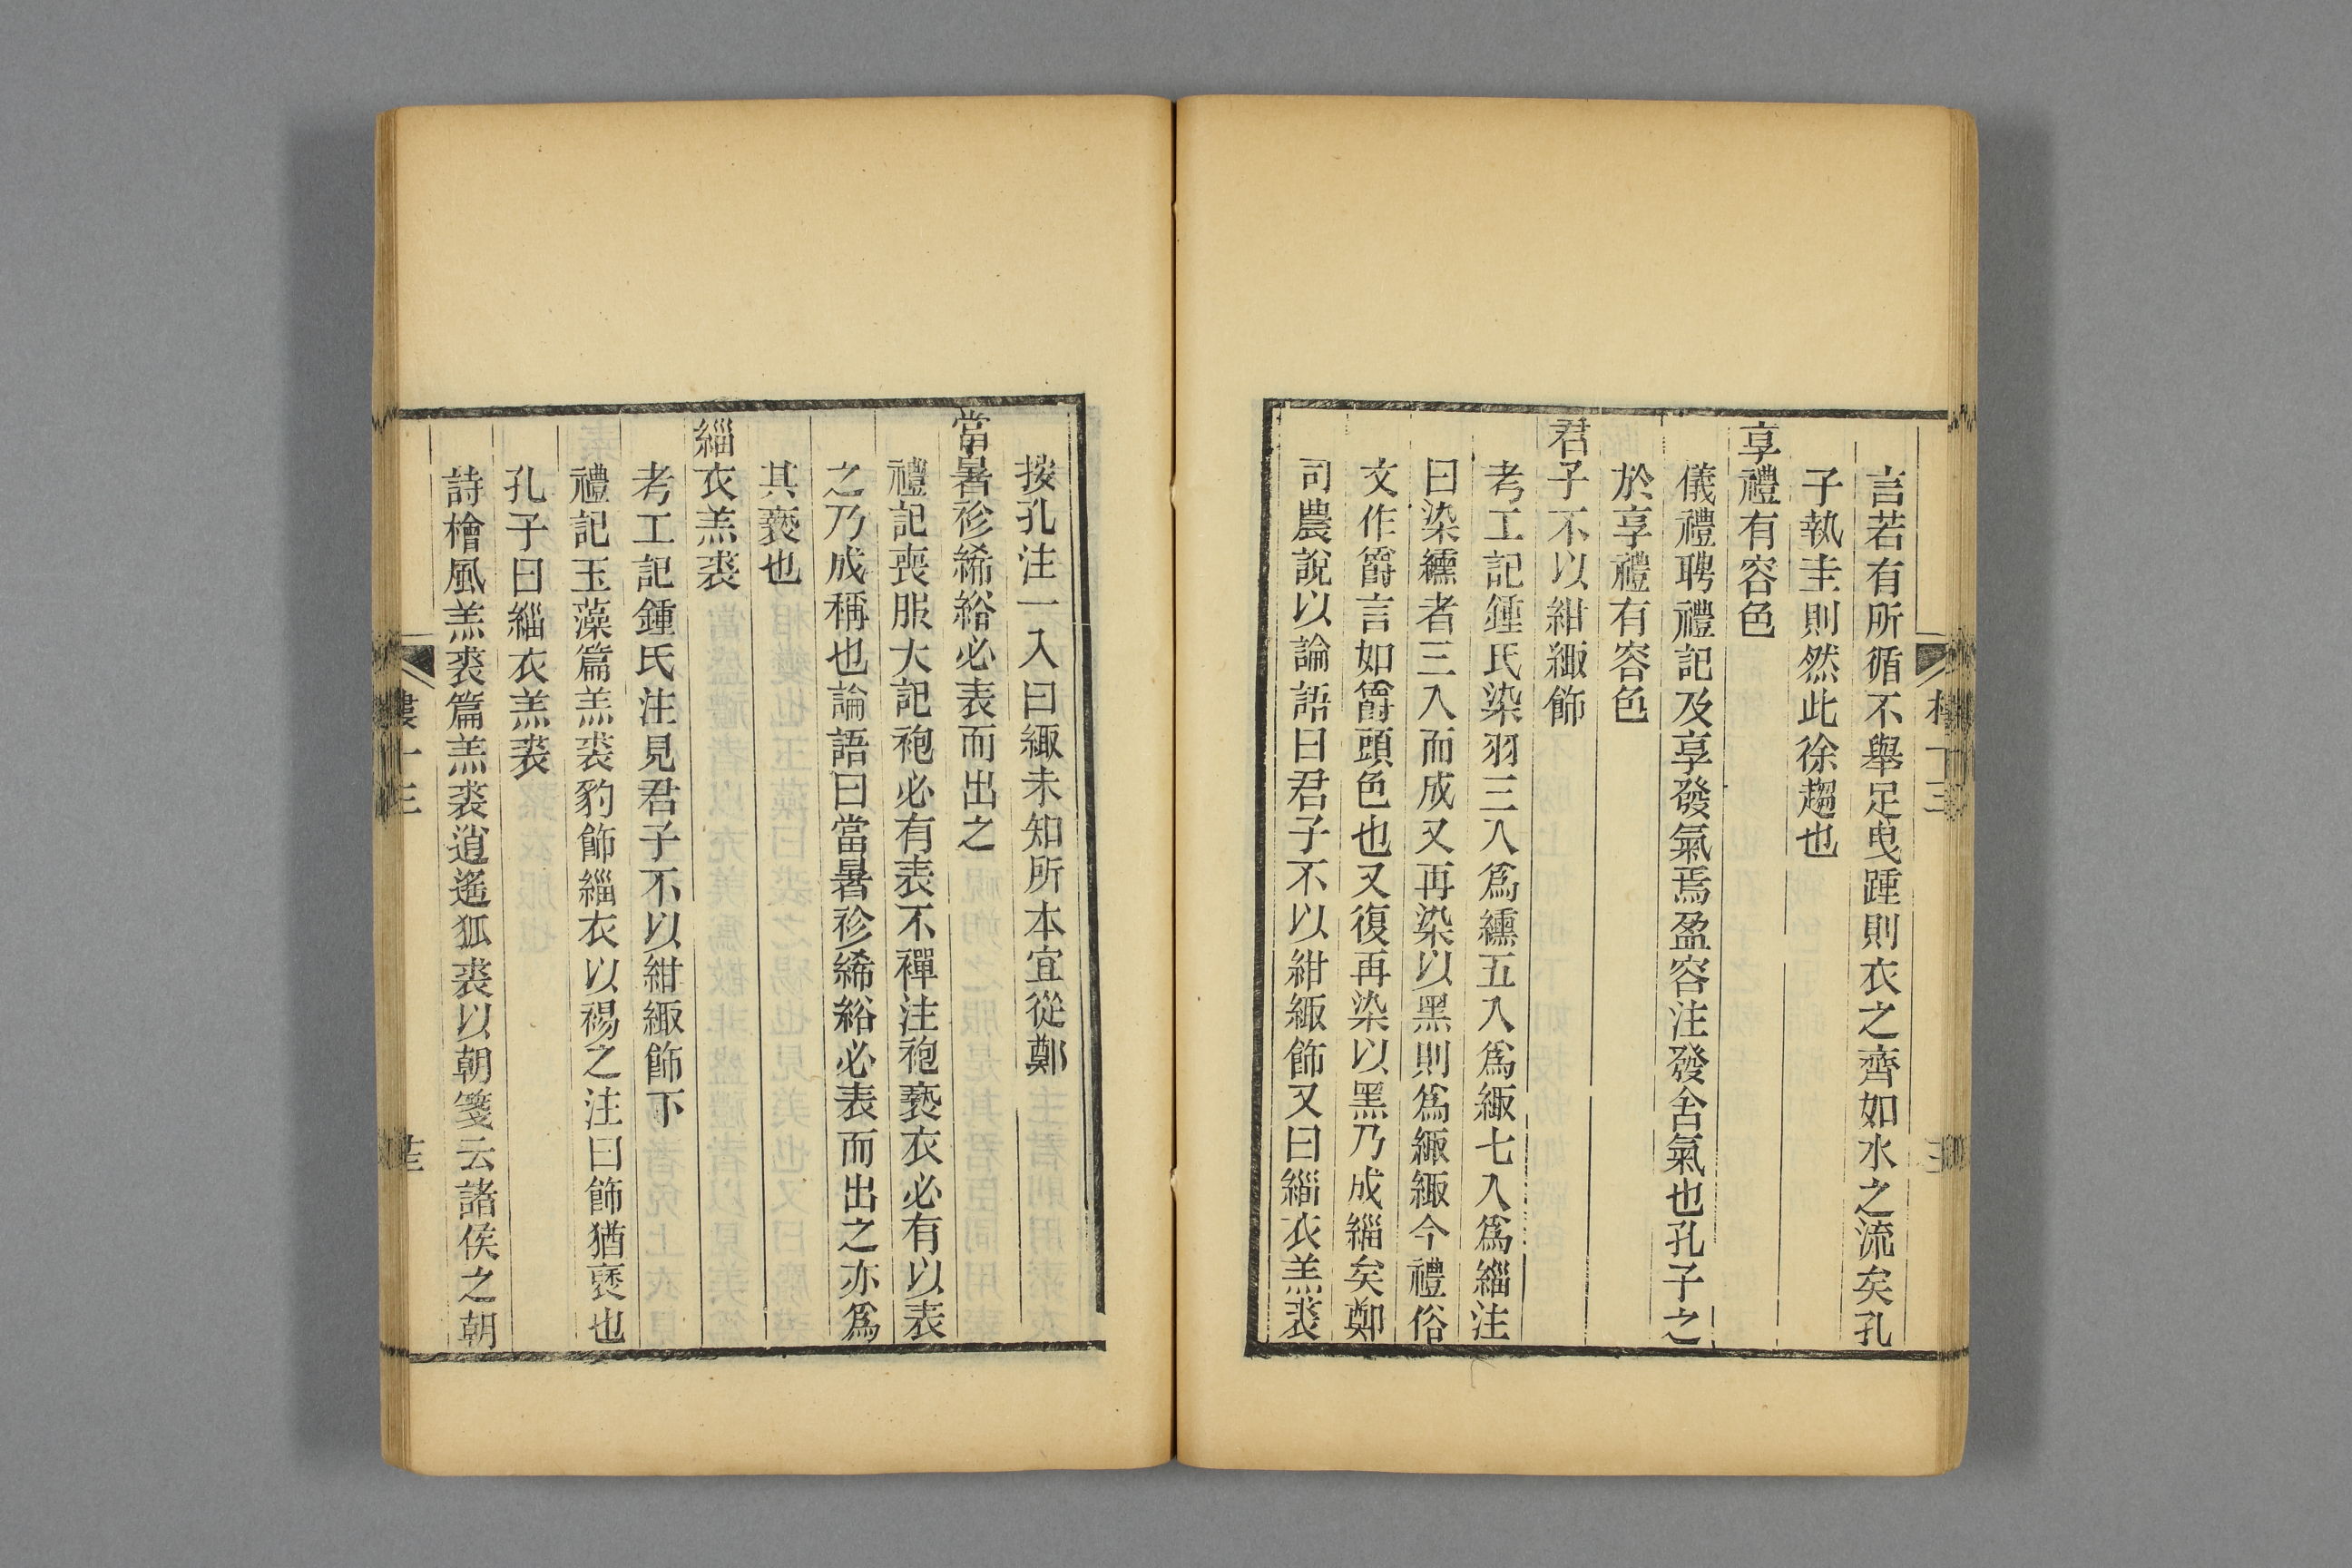 言若有所循不舉足曳踵則衣之齊如水之流矣孔
子執圭則然此徐趨也
享禮有容色
儀禮聘禮記及享發氣焉盈容注發舍氣也孔子之
於享禮有容色
君子不以紺緅飾
考工記鍾氏染羽三入爲纁五入爲緅七入爲緇注
曰染纁者三入而成又再染以黑則爲緅緅今禮俗
文作爵言如爵頭色也又復再染以黑乃成緇矣鄭
司農說以論語曰君子不以紺緅飾又曰緇衣羔裘
按孔注一入曰緅未知所本宜從鄭
當暑袗絺綌必表而出之
禮記喪服大記袍必有表不襌注袍褻衣必有以表
之乃成稱也論語曰當暑袗絺綌必表而出之亦爲
其褻也
緇衣羔裘
考工記鍾氏注見君子不以紺緅飾下
禮記玉藻篇羔裘豹飾緇衣以裼之注曰飾猶褎也
孔子曰緇衣羔裘
詩檜風羔裘篇羔裘逍遙狐裘以朝箋云諸侯之朝
十三